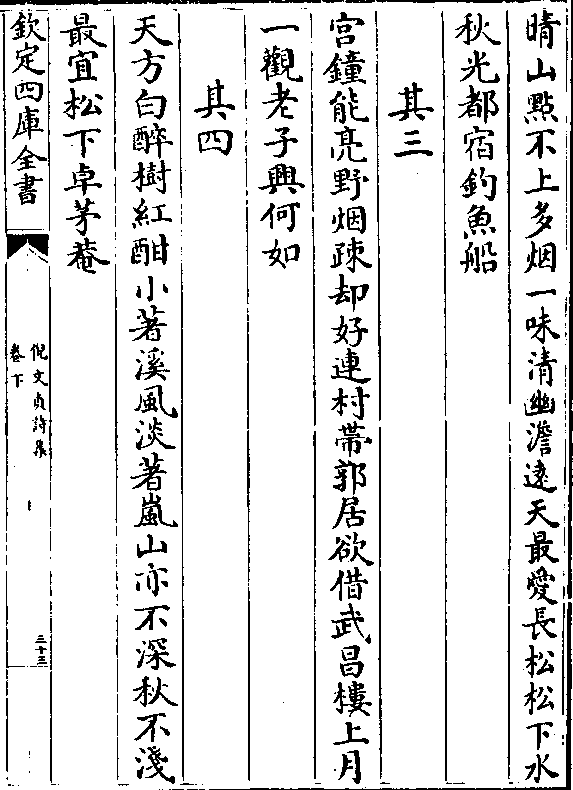 晴山點不上多烟一味清幽澹遠天最愛長松松下水
秋光都宿釣魚船
其三
宮鐘能亮野烟疎却好連村帶郭居欲借武昌樓上月
一觀老子興何如
其四
天方白醉樹紅酣小著溪風淡著嵐山亦不深秋不淺
最宜松下卓茅菴
欽定四庫全書
倪文貞詩集
卷下
三十三